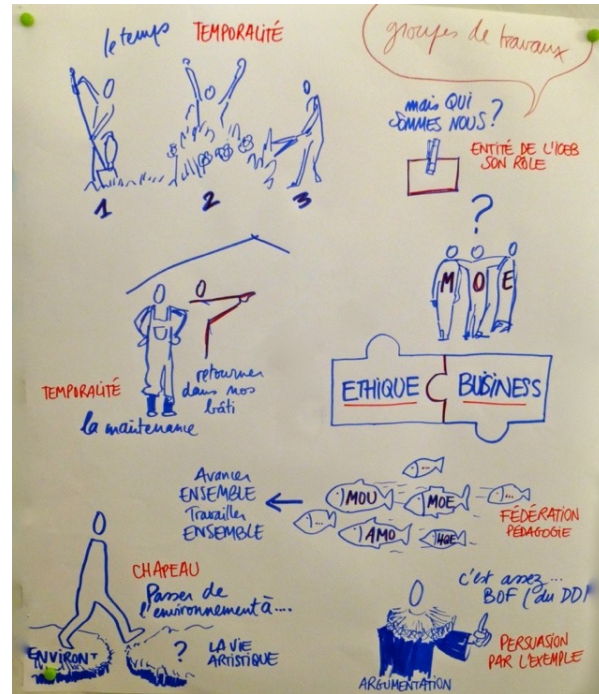 le temps TEMPORALITÉ
groupes de travaux
mais QUI
SOMMES NOUS?
ENTITÉ DE L'ICEB
SON RÔLE
1 2 3
?
M O E
TEMPORALITÉ
la maintenance
retourner
dans nos
bâti
ETHIQUE BUSINESS
Avancer
ENSEMBLE
Travailler
ENSEMBLE
...
MOU MOE ...
... AMO HQE
FÉDÉRATION
PÉDAGOGIE
CHAPEAU
Passer de
l'environnement à....
ENVIRONT ? LA VIE
ARTISTIQUE
c'est assez...
BOF (du DD)
PERSUASION
PAR L'EXEMPLE
ARGUMENTATION